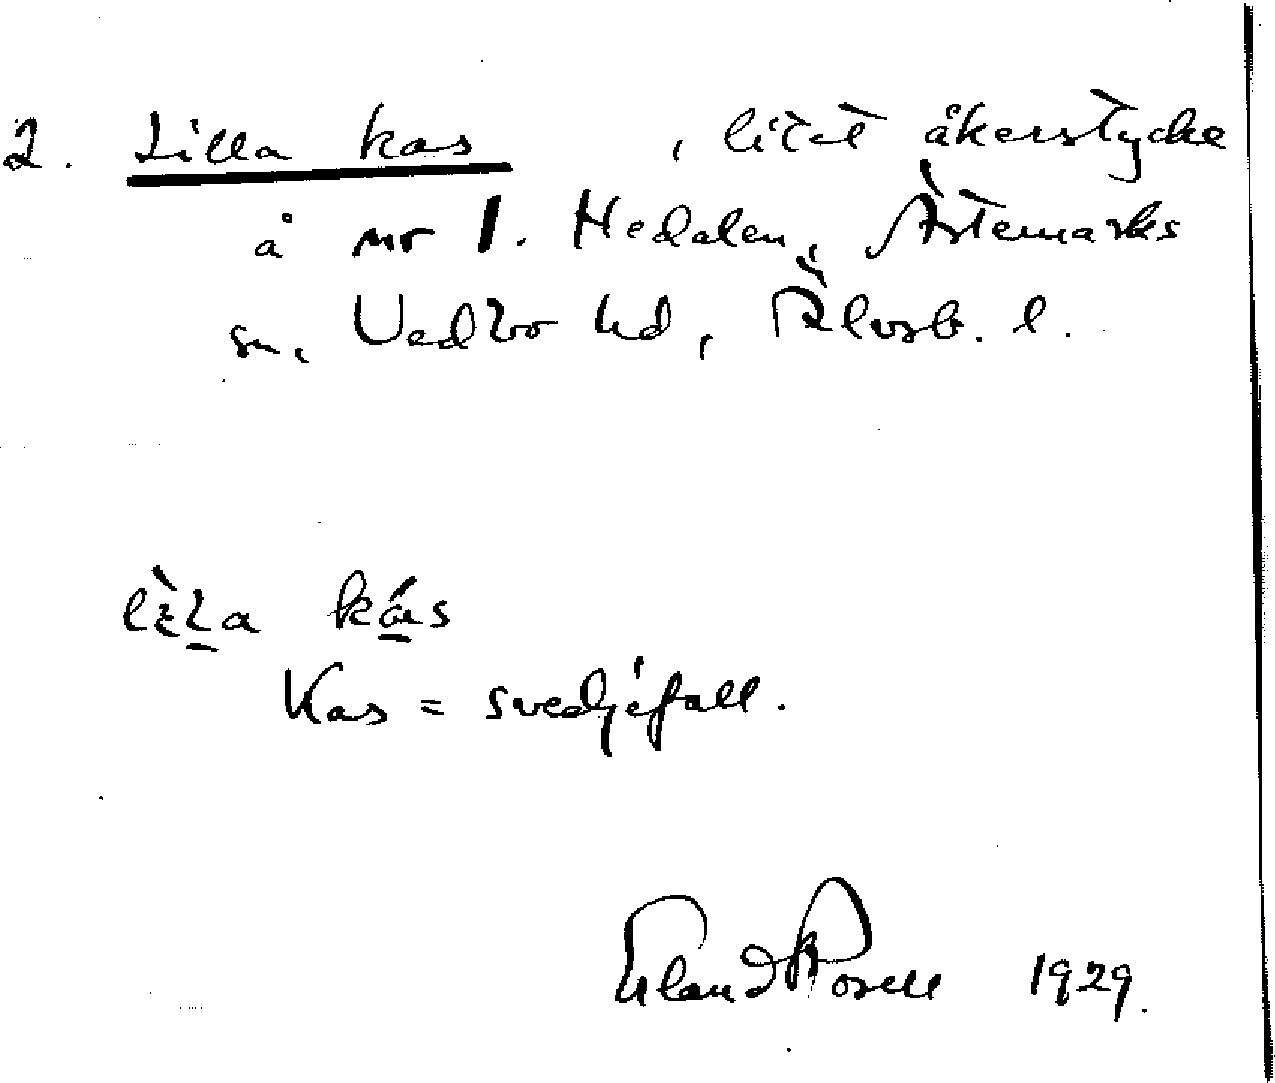 2. Lilla kas , litet åkerstycke
å nr 1. Hedalen, Ärtemarks
sn, Vedbo hd, Älvsb. l.
kás
Kas = svedjefall.
Erland Rosell 1929.